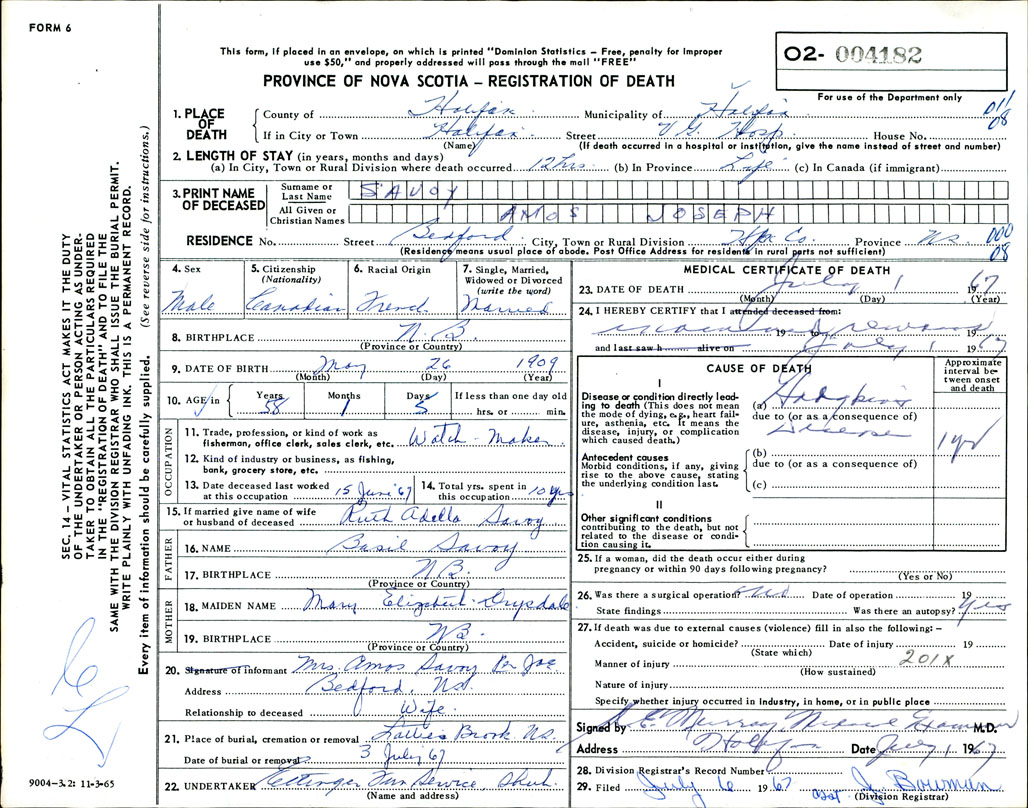 FORM 6
This form, if placed in an envelope, on which is printed "Dominion Statistics – Free, penalty for improper
use $50," and properly addressed will pass through the mail "FREE"
O2- 004182
For use of the Department only
PROVINCE OF NOVA SCOTIA – REGISTRATION OF DEATH
SEC. 14 – VITAL STATISTICS ACT MAKES IT THE DUTY
OF THE UNDERTAKER OR PERSON ACTING AS UNDER-
TAKER TO OBTAIN ALL THE PARTICULARS REQUIRED
IN THE "REGISTRATION OF DEATH" AND TO FILE THE
SAME WITH THE DIVISION REGISTRAR WHO SHALL ISSUE THE BURIAL PERMIT.
WRITE PLAINLY WITH UNFADING INK. THIS IS A PERMANENT RECORD.
Every item of information should be carefully supplied. (See reverse side for instructions.)
1. PLACE OF DEATH
County of Halifax Municipality of Halifax 011
If in City or Town Halifax Street V G Hosp House No. 08
(Name) (If death occurred in a hospital or institution, give the name instead of street and number)
2. LENGTH OF STAY (in years, months and days)
(a) In City, Town or Rural Division where death occurred 12 hrs. (b) In Province Life (c) In Canada (if immigrant)
3. PRINT NAME OF DECEASED
Surname or Last Name SAVOY
All Given or Christian Names AMOS JOSEPH
RESIDENCE No. Street Bedford City, Town or Rural Division Hfx Co. Province NS 000
(Residence means usual place of abode. Post Office Address for residents in rural parts not sufficient) 08
4. Sex Male
5. Citizenship (Nationality) Canadian
6. Racial Origin French
7. Single, Married, Widowed or Divorced (write the word) Married
8. BIRTHPLACE N.B.
(Province or Country)
9. DATE OF BIRTH May 26 1909
(Month) (Day) (Year)
10. AGE in Years 58 Months 1 Days 5 If less than one day old hrs. or min.
OCCUPATION
11. Trade, profession, or kind of work as Watch-Maker
fisherman, office clerk, sales clerk, etc.
12. Kind of industry or business, as fishing,
bank, grocery store, etc.
13. Date deceased last worked at this occupation 15 June '67
14. Total yrs. spent in this occupation 10 yrs
15. If married give name of wife or husband of deceased Ruth Adella Savoy
FATHER
16. NAME Basil Savoy
17. BIRTHPLACE N.B.
(Province or Country)
MOTHER
18. MAIDEN NAME Mary Elizabeth Drysdale
19. BIRTHPLACE N.B.
(Province or Country)
20. Signature of informant Mrs. Amos Savoy Per Joe
Address Bedford, N.S.
Relationship to deceased Wife.
21. Place of burial, cremation or removal Latties Brook N.S.
Date of burial or removal 3 July '67
22. UNDERTAKER Ettinger Fun Service,
(Name and address)
9004-3.2: 11-3-65
MEDICAL CERTIFICATE OF DEATH
23. DATE OF DEATH July 1 1967
(Month) (Day) (Year)
24. I HEREBY CERTIFY that I attended deceased from:
19 to 19
and last saw h alive on July 1 1967
CAUSE OF DEATH
Approximate interval between onset and death
I
Disease or condition directly lead-
ing to death (This does not mean
the mode of dying, e.g., heart fail-
ure, asthenia, etc. It means the
disease, injury, or complication
which caused death.)
(a) Hodgkins
due to (or as a consequence of)
Disease 1 yr
Antecedent causes
Morbid conditions, if any, giving
rise to the above cause, stating
the underlying condition last.
(b)
due to (or as a consequence of)
(c)
II
Other significant conditions
contributing to the death, but not
related to the disease or condi-
tion causing it.
25. If a woman, did the death occur either during
pregnancy or within 90 days following pregnancy?
(Yes or No)
26. Was there a surgical operation? no Date of operation 19
State findings Was there an autopsy? Yes
27. If death was due to external causes (violence) fill in also the following: –
Accident, suicide or homicide? Date of injury 19
(State which)
Manner of injury 201X
(How sustained)
Nature of injury
Specify whether injury occurred in industry, in home, or in public place
Signed by E Murray Medical Examiner M.D.
Address Halifax Date July 1 1967
28. Division Registrar's Record Number
29. Filed July 6 1967 asst J. Bowman
(Division Registrar)